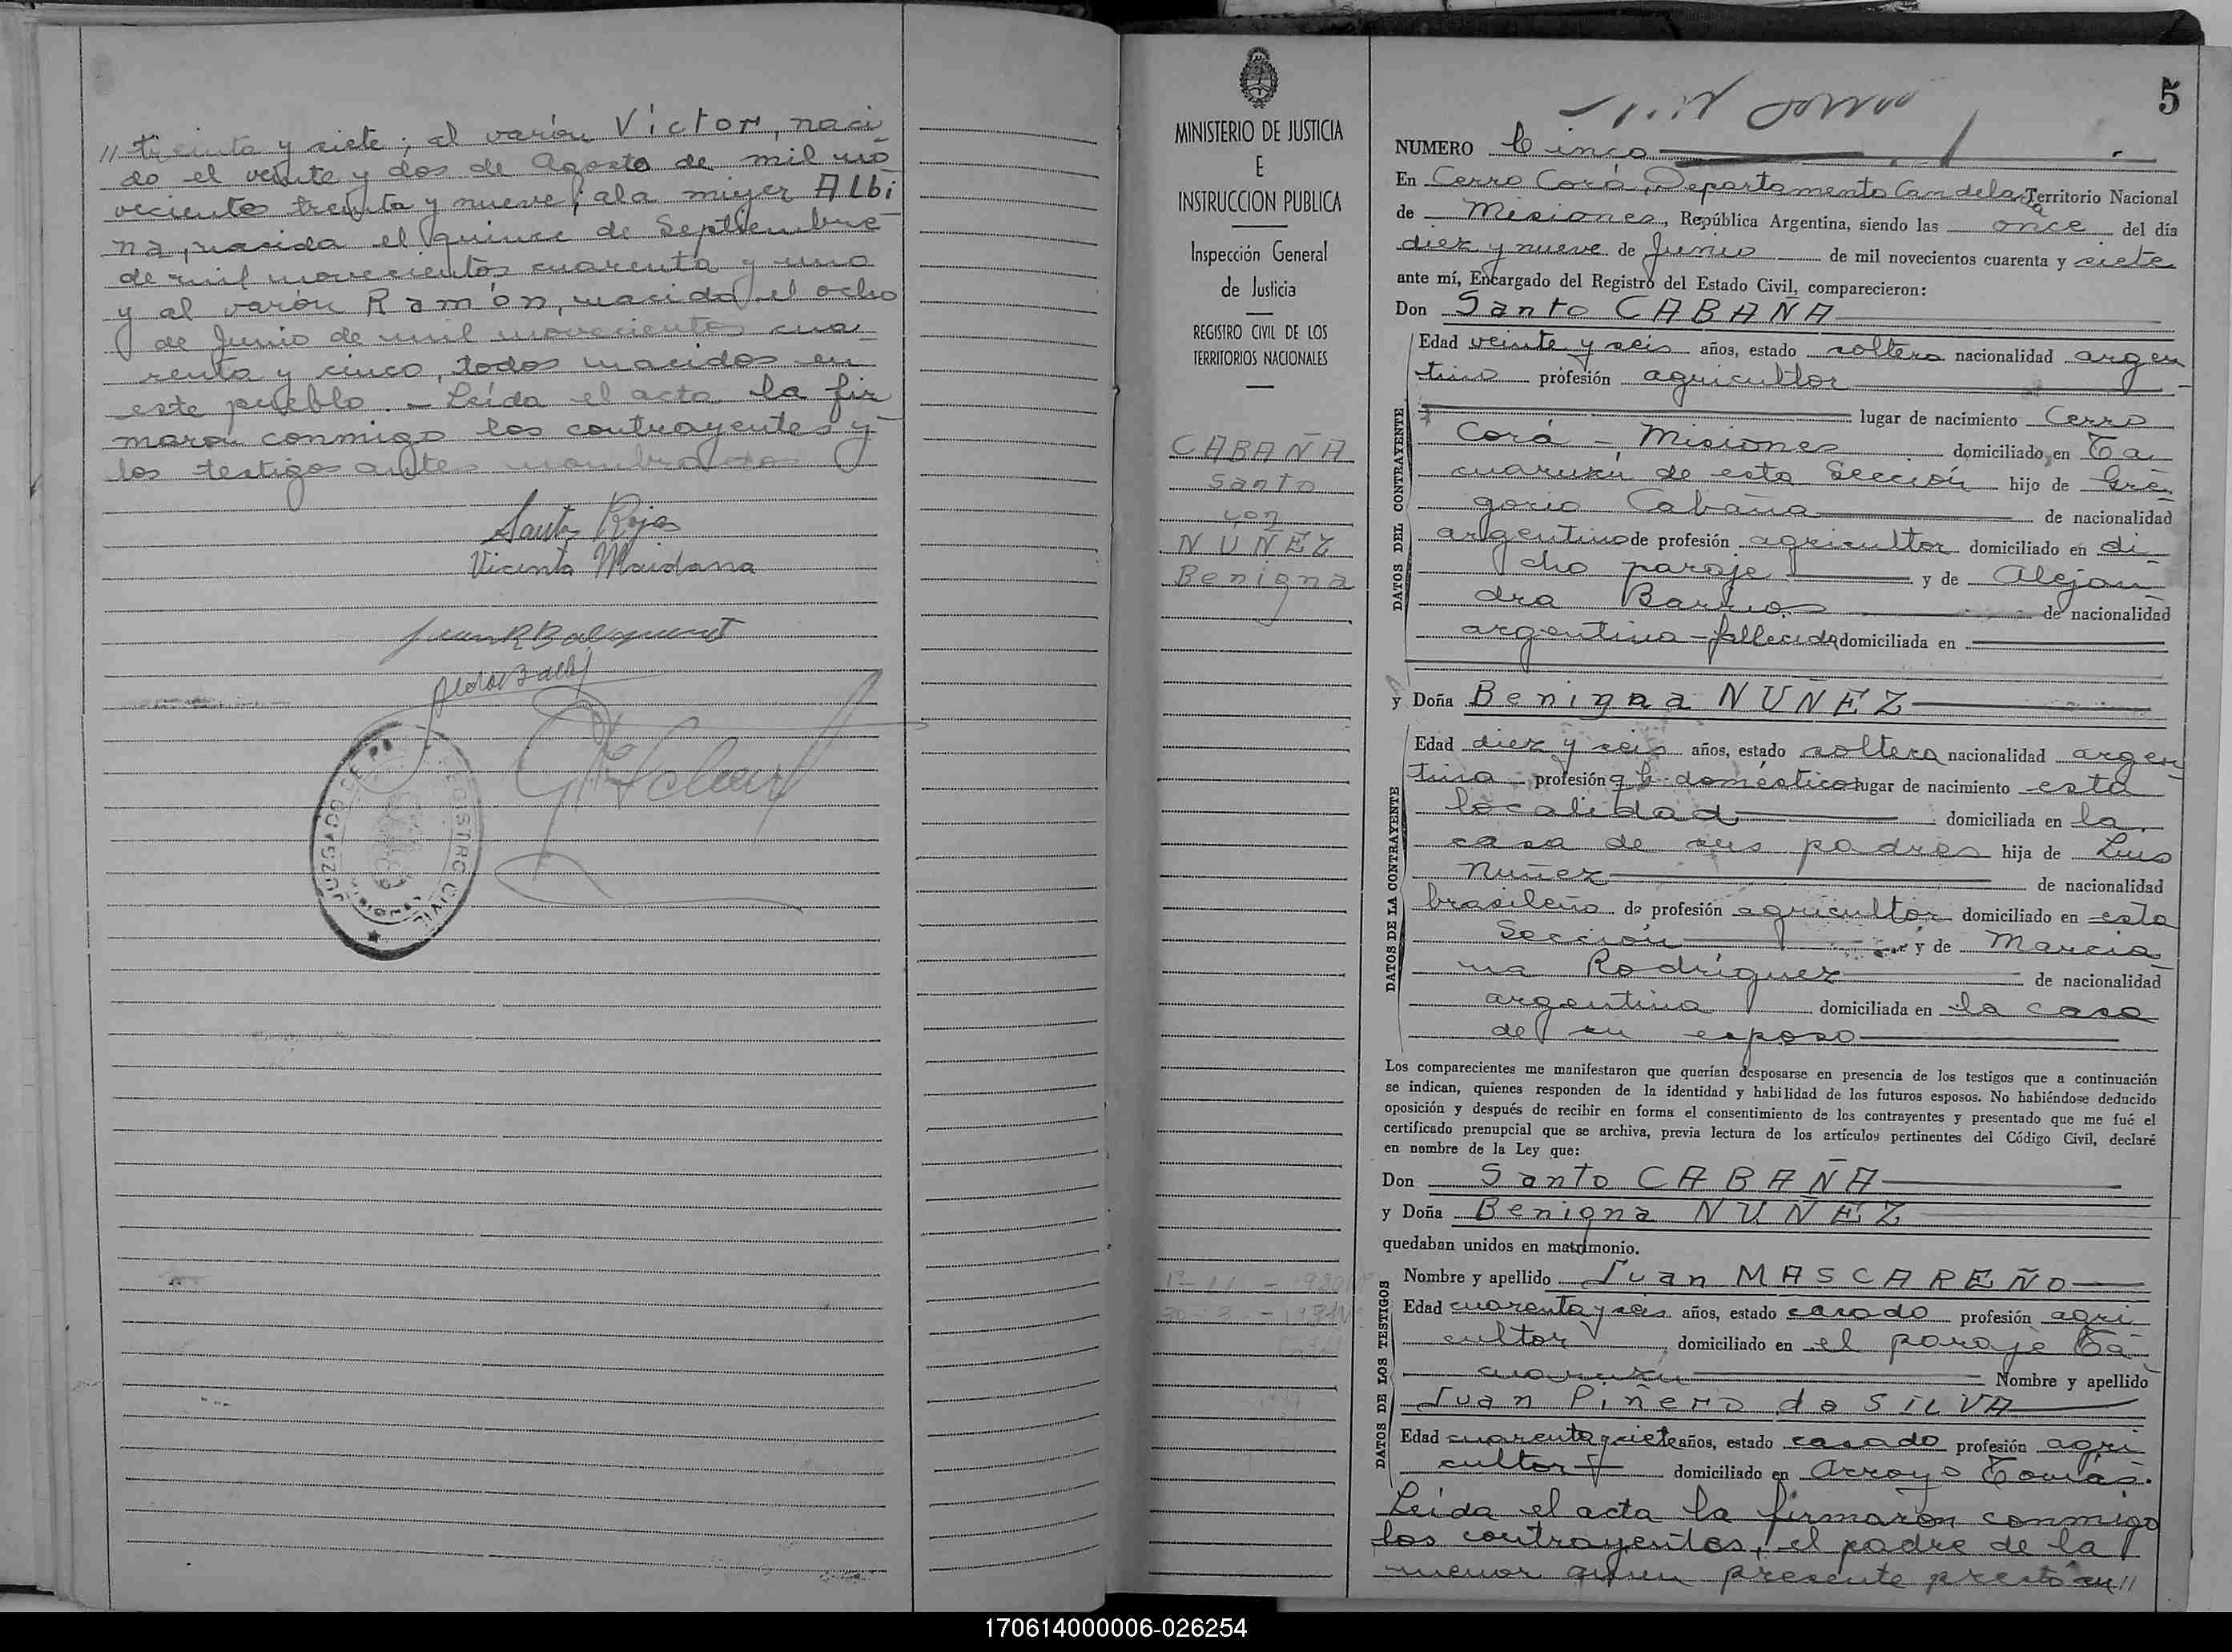 // treinta y siete; al varón Víctor, naci
do el veinte y dos de Agosto de mil no
vecientos treinta y nueve; a la mujer Albi
na, nacida el quince de Septiembre
de mil novecientos cuarenta y uno
y al varón Ramón, nacido el ocho
de Junio de mil novecientos cua
renta y cinco, todos nacidos en
este pueblo. - Leída el acta la fir
maron conmigo los contrayentes y
los testigos antes nombrados
Santo Rojas
Vicenta Maidana
JUZGADO DE PAZ
REGISTRO CIVIL
MISIONES
MINISTERIO DE JUSTICIA
E
INSTRUCCION PUBLICA
Inspección General
de Justicia
REGISTRO CIVIL DE LOS
TERRITORIOS NACIONALES
CABAÑA
Santo
con
NUÑEZ
Benigna
5
NUMERO Cinco
En Cerro Corá, Departamento Candelaria Territorio Nacional
de Misiones, República Argentina, siendo las once del día
diez y nueve de Junio de mil novecientos cuarenta y siete
ante mí, Encargado del Registro del Estado Civil, comparecieron:
Don Santo CABAÑA
DATOS DEL CONTRAYENTE
Edad veinte y seis años, estado soltero nacionalidad argen
tino profesión agricultor
lugar de nacimiento Cerro
Corá - Misiones domiciliado en Ta
cuaruzú de esta Sección hijo de Gre
gorio Cabaña de nacionalidad
argentino de profesión agricultor domiciliado en di
cho paraje y de Alejan
dra Barrios de nacionalidad
argentina - fallecida domiciliada en
y Doña Benigna NUÑEZ
DATOS DE LA CONTRAYENTE
Edad diez y seis años, estado soltera nacionalidad argen
tina profesión q h domésticos lugar de nacimiento esta
localidad domiciliada en la
casa de sus padres hija de Luis
Nuñez de nacionalidad
brasileño de profesión agricultor domiciliado en esta
Sección y de Marcia
na Rodríguez de nacionalidad
argentina domiciliada en la casa
de su esposo
Los comparecientes me manifestaron que querían desposarse en presencia de los testigos que a continuación
se indican, quienes responden de la identidad y habilidad de los futuros esposos. No habiéndose deducido
oposición y después de recibir en forma el consentimiento de los contrayentes y presentado que me fué el
certificado prenupcial que se archiva, previa lectura de los artículos pertinentes del Código Civil, declaré
en nombre de la Ley que:
Don Santo CABAÑA
y Doña Benigna NUÑEZ
quedaban unidos en matrimonio.
DATOS DE LOS TESTIGOS
Nombre y apellido Juan MASCAREÑO
Edad cuarenta y seis años, estado casado profesión agri
cultor domiciliado en el paraje Ta
cuaruzú Nombre y apellido
Juan Piñero da SILVA
Edad cuarenta y siete años, estado casado profesión agri
cultor domiciliado en Arroyo Tomás.
Leída el acta la firmaron conmigo
los contrayentes, el padre de la
menor quien presente prestó su //
170614000006-026254